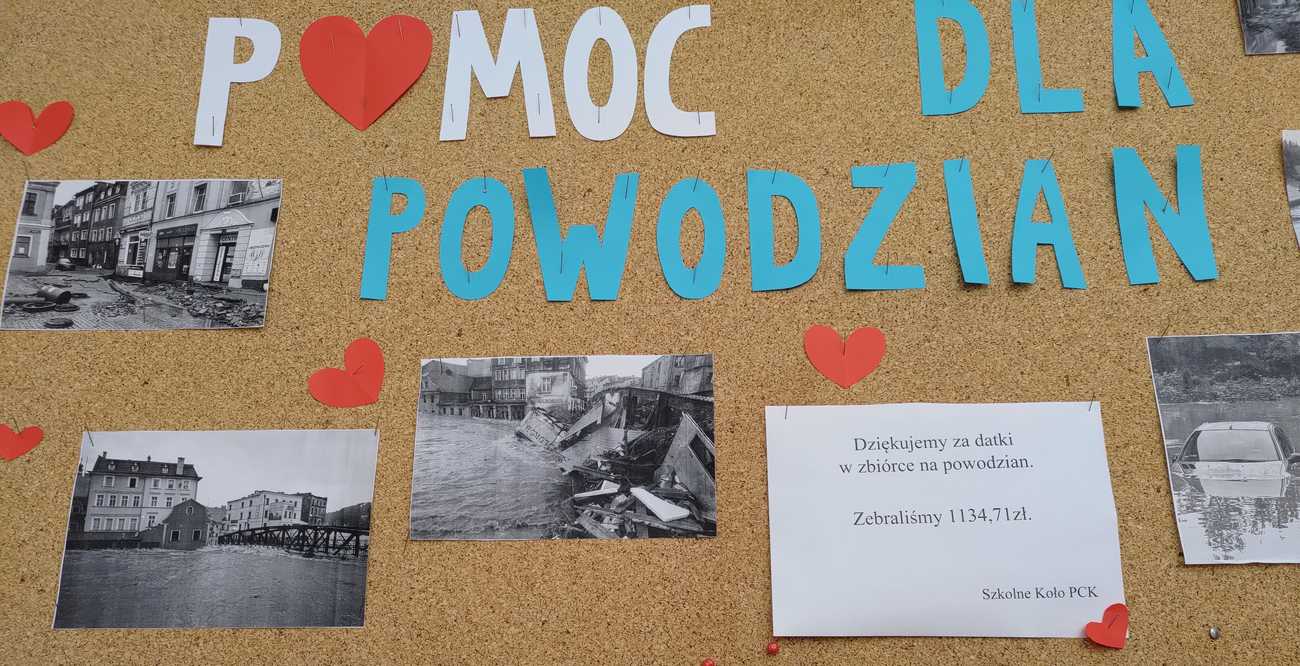 POMOC DLA
POWODZIAN
Dziękujemy za datki
w zbiórce na powodzian.
Zebraliśmy 1134,71zł.
Szkolne Koło PCK